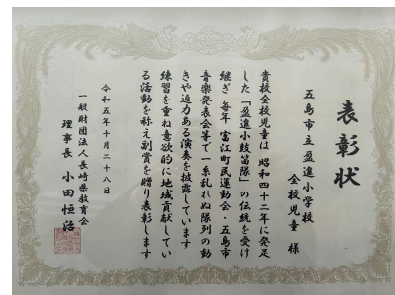 表彰状
五島市立盈進小学校
全校児童 様
貴校全校児童は 昭和四十二年に発足
した「盈進小鼓笛隊」の伝統を受け
継ぎ 毎年 富江町民運動会・五島市
音楽発表会等で一糸乱れぬ隊列の動
きや迫力ある演奏を披露しています
練習を重ね意欲的に地域貢献してい
る活動を称え副賞を贈り表彰します
令和五年十月二十八日
一般財団法人長崎県教育会
理事長 小田恒治